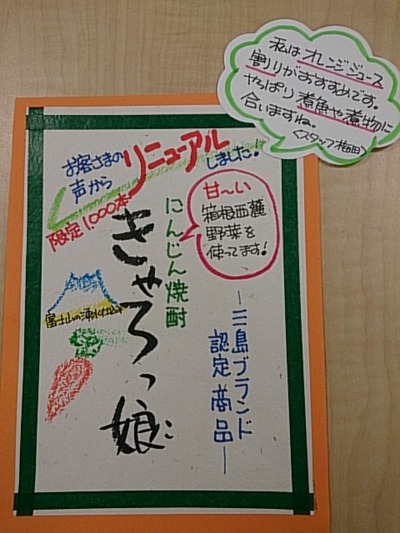 私はオレンジジュース
割りがおすすめです。
やっぱり煮魚や煮物に
合いますね。
〈スタッフ梅田〉
お客さまの
声から
リニューアル
しました!
限定1,000本
甘〜い
箱根西麓
野菜を
使ってます!
にんじん焼酎
きゃろっ娘
富士山の湧水仕込み
―三島ブランド
認定商品―